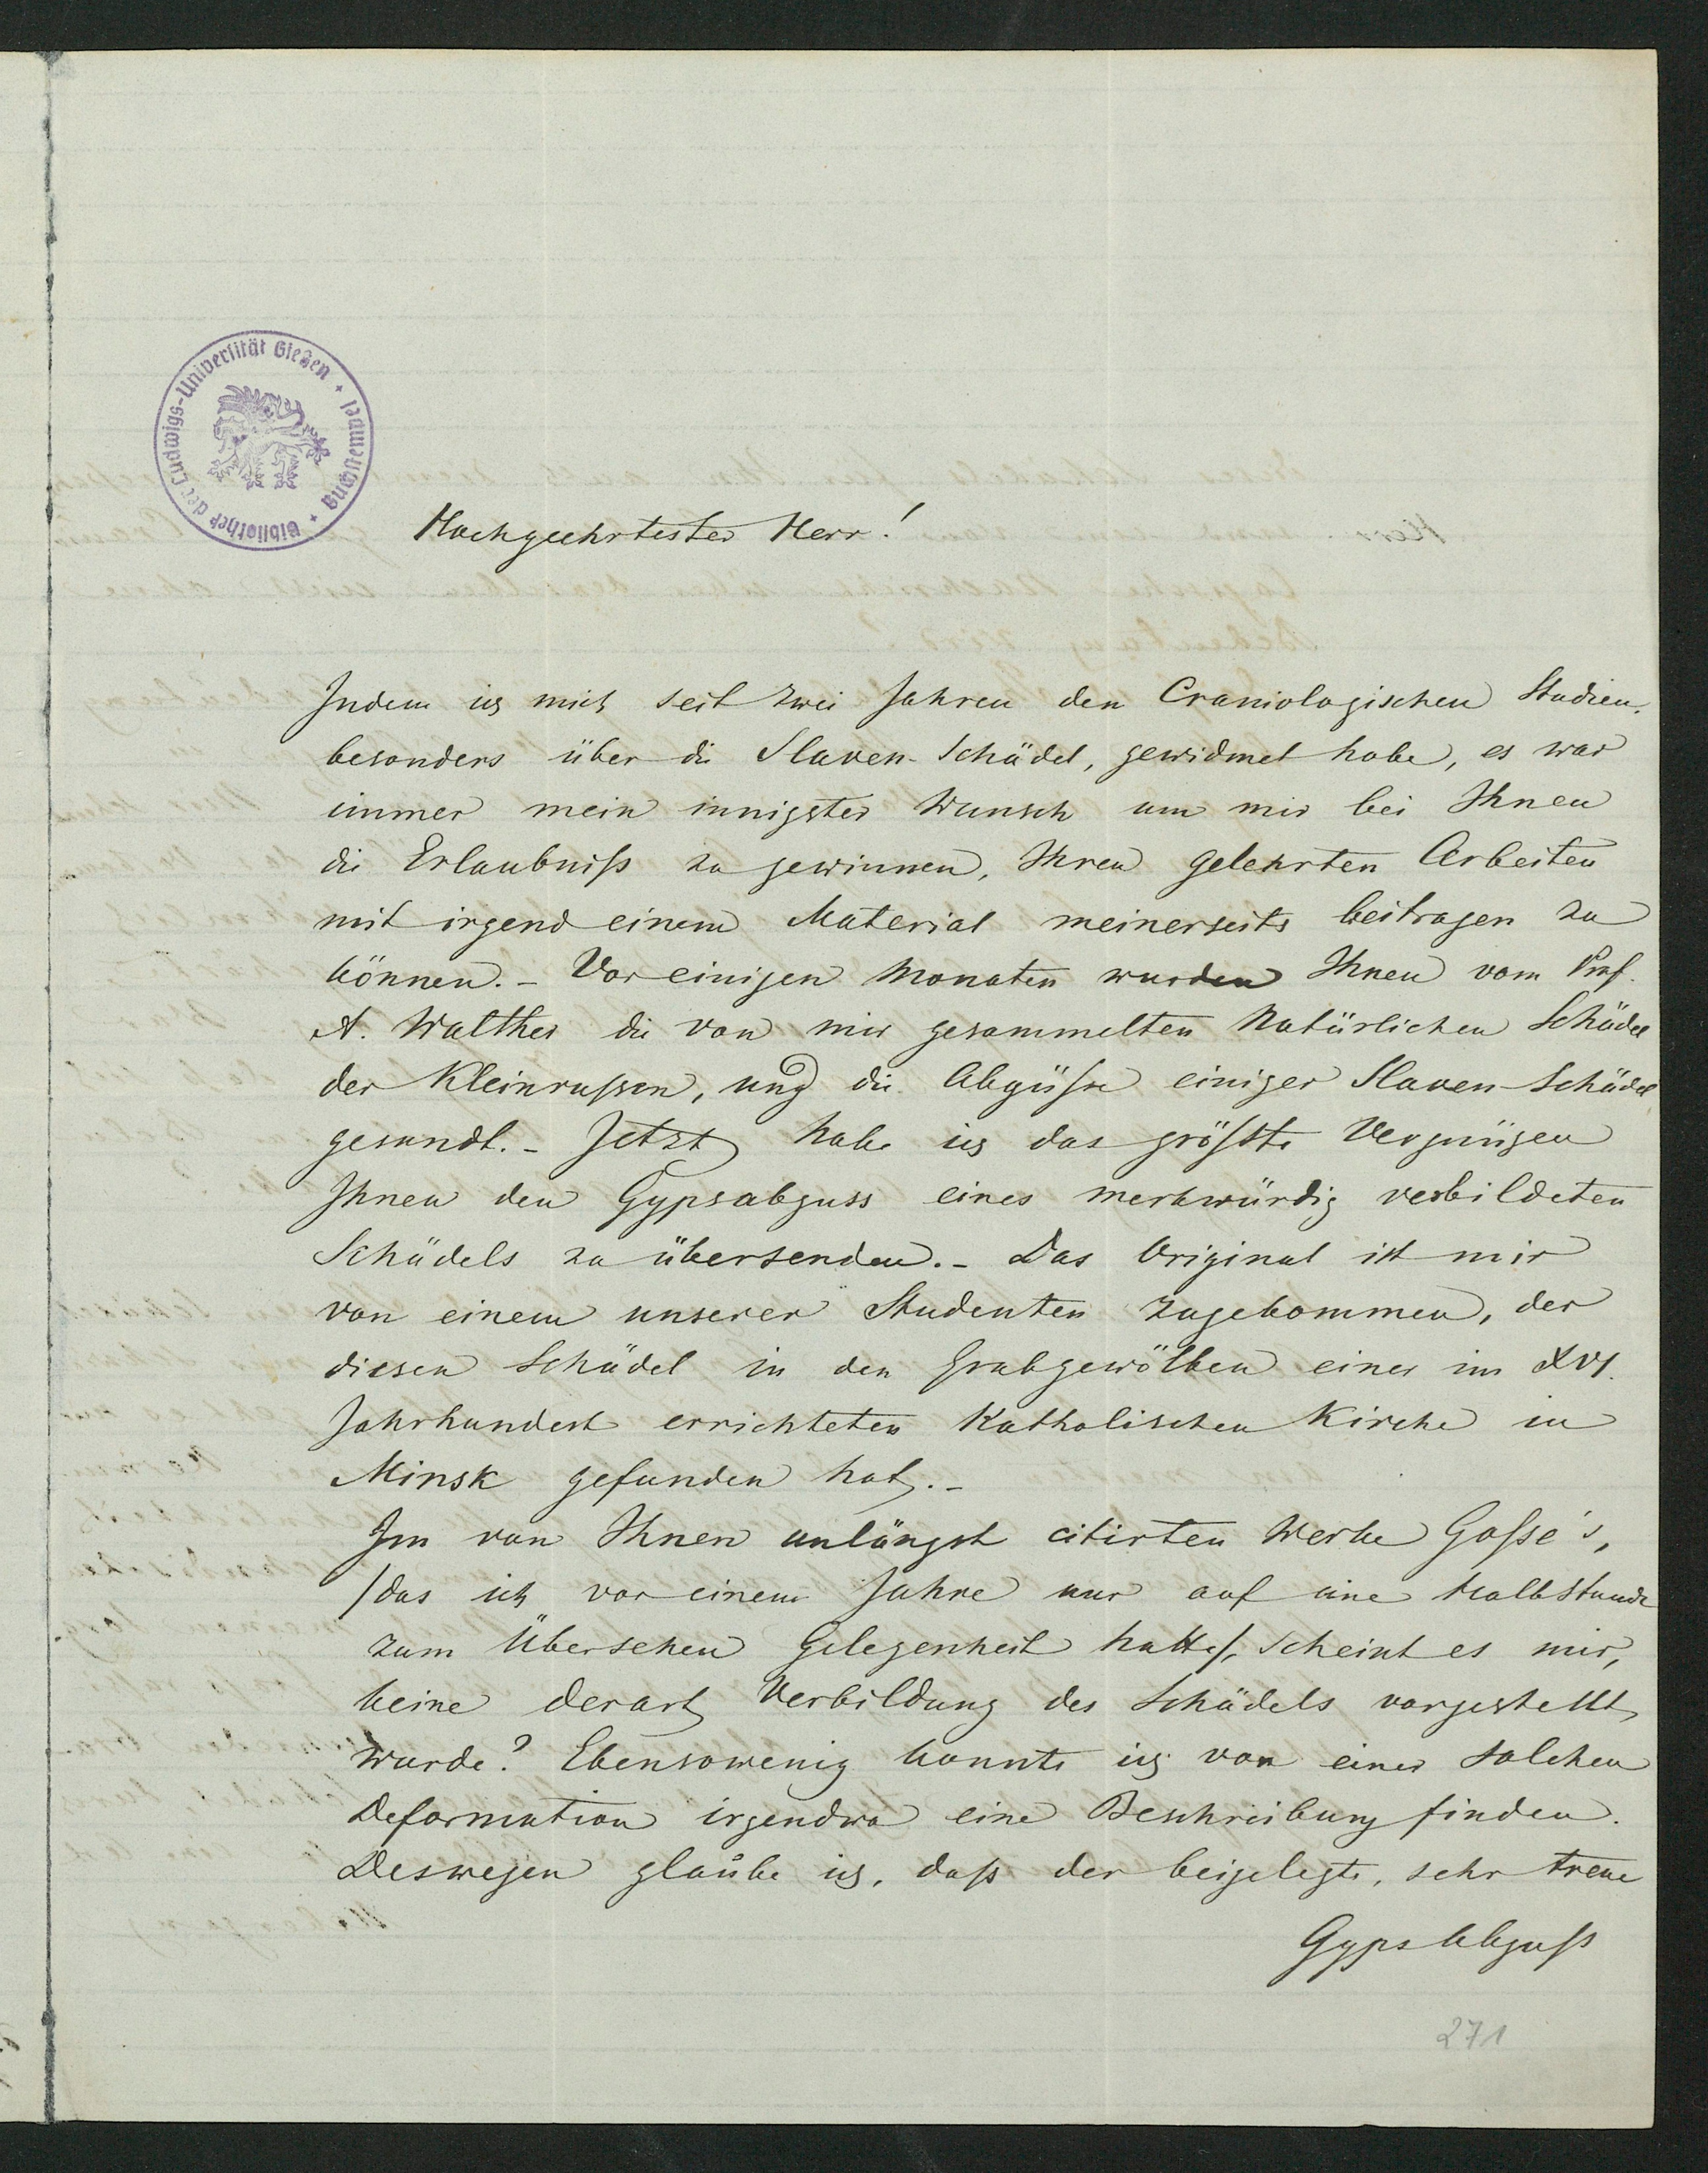 Bibliothek der Ludwigs-Universität Gießen + Buchstempel +
Hochgeehrtester Herr!
Indem ich mich seit zwei Jahren den Craniologischen Studien,
besonders über die Slaven-Schädel, gewidmet habe, es war
immer mein innigster Wunsch um mir bei Ihnen
die Erlaubniß zu gewinnen, Ihren gelehrten Arbeiten
mit irgend einem Material meinerseits beitragen zu
können. - Vor einigen Monaten wurden Ihnen vom Prof.
A. Walther die von mir gesammelten Natürlichen Schädel
der Kleinrußen, und die Abgüße einiger Slaven-Schädel
gesandt. - Jetzt habe ich das größte Vergnügen
Ihnen den Gypsabguss eines merkwürdig verbildeten
Schädels zu übersenden. - Das Original ist mir
von einem unserer Studenten zugekommen, der
diesen Schädel in den Grabgewölben einer im XVI.
Jahrhundert errichteten Katholischen Kirche in
Minsk gefunden hat. -
Im von Ihnen unlängst citirten Werke Goße's,
/das ich vor einem Jahre nur auf eine Halbstunde
zum Übersehen Gelegenheit hatte/, scheint es mir,
keine derart Verbildung des Schädels vorgestellt
wurde? Ebensowenig konnte ich von einer solchen
Deformation irgendwo eine Beschreibung finden.
Deswegen glaube ich, daß der beigelegte, sehr treue
Gyps Abguß
271